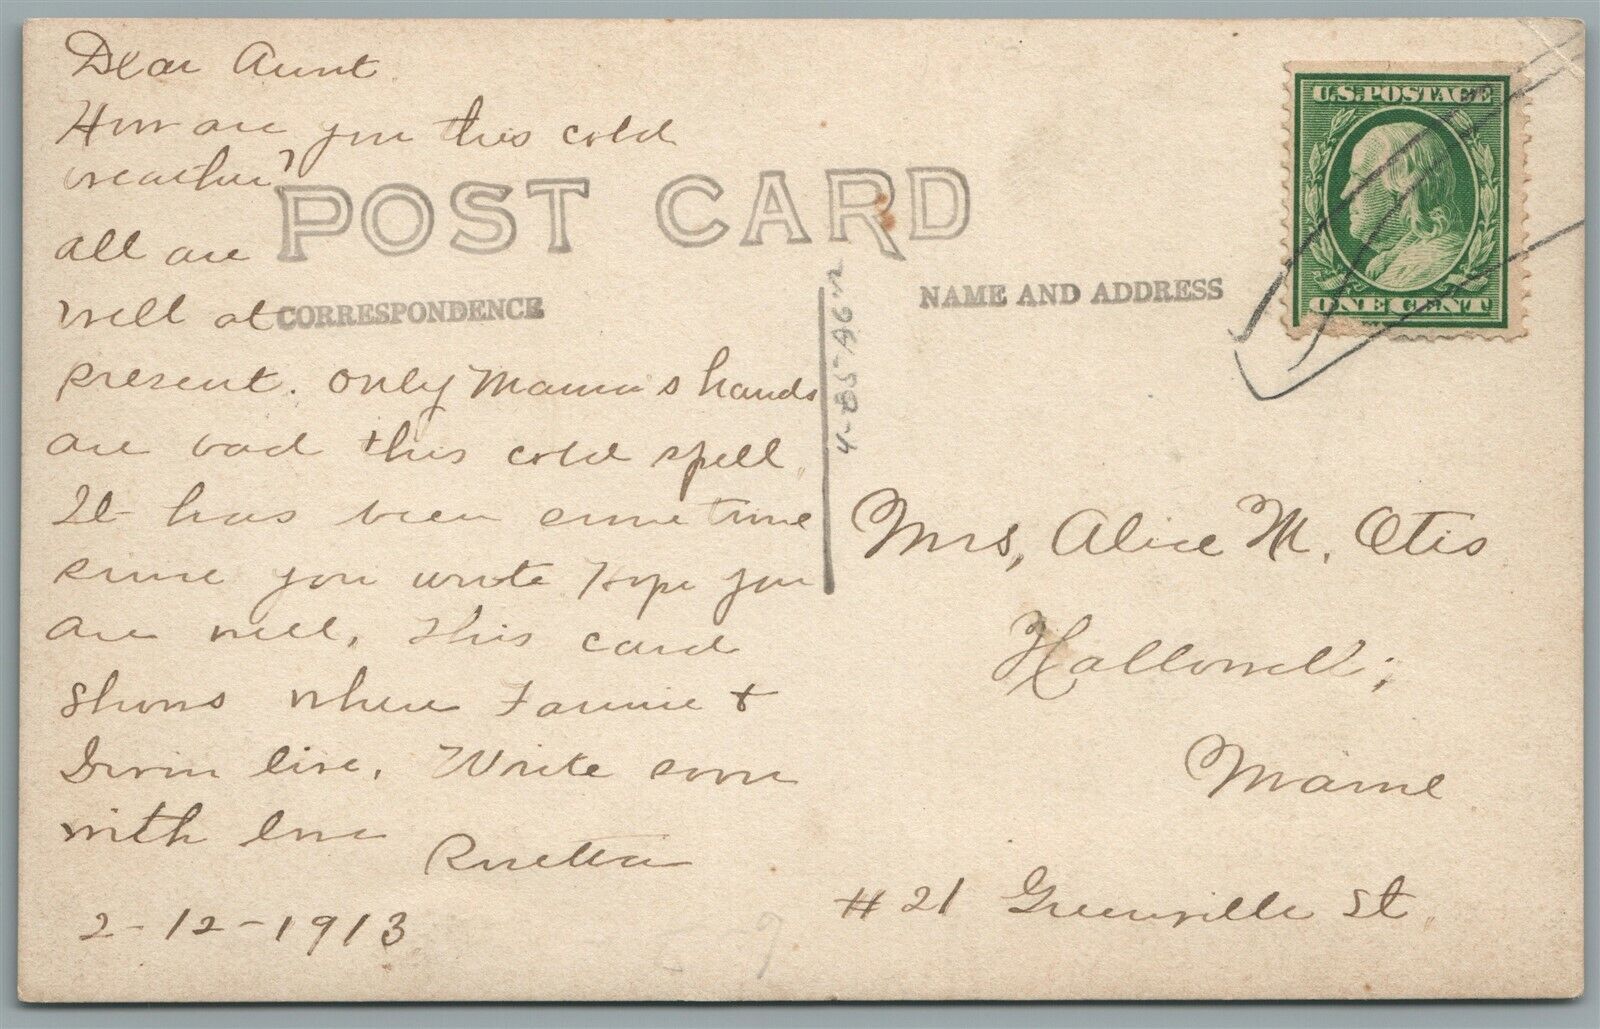 Dear Aunt.
How are you this cold
weather?
POST CARD
all are
well at
CORRESPONDENCE
present. only Mama's hands
are bad this cold spell.
It has been some time
since you wrote Hope you
are well. This card
shows where Fannie +
Irvin live. Write soon
with love
2-12-1913
U.S. POSTAGE
ONE CENT
NAME AND ADDRESS
Mrs, Alice M. Otis
Hallowell;
Maine
#21 Greenville St.